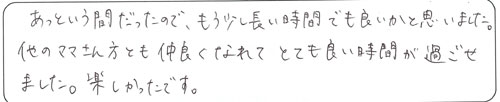 あっという間だったので、もう少し長い時間でも良いかと思いました。
他のママさん方とも仲良くなれて とても良い時間が過ごせ
ました。楽しかったです。